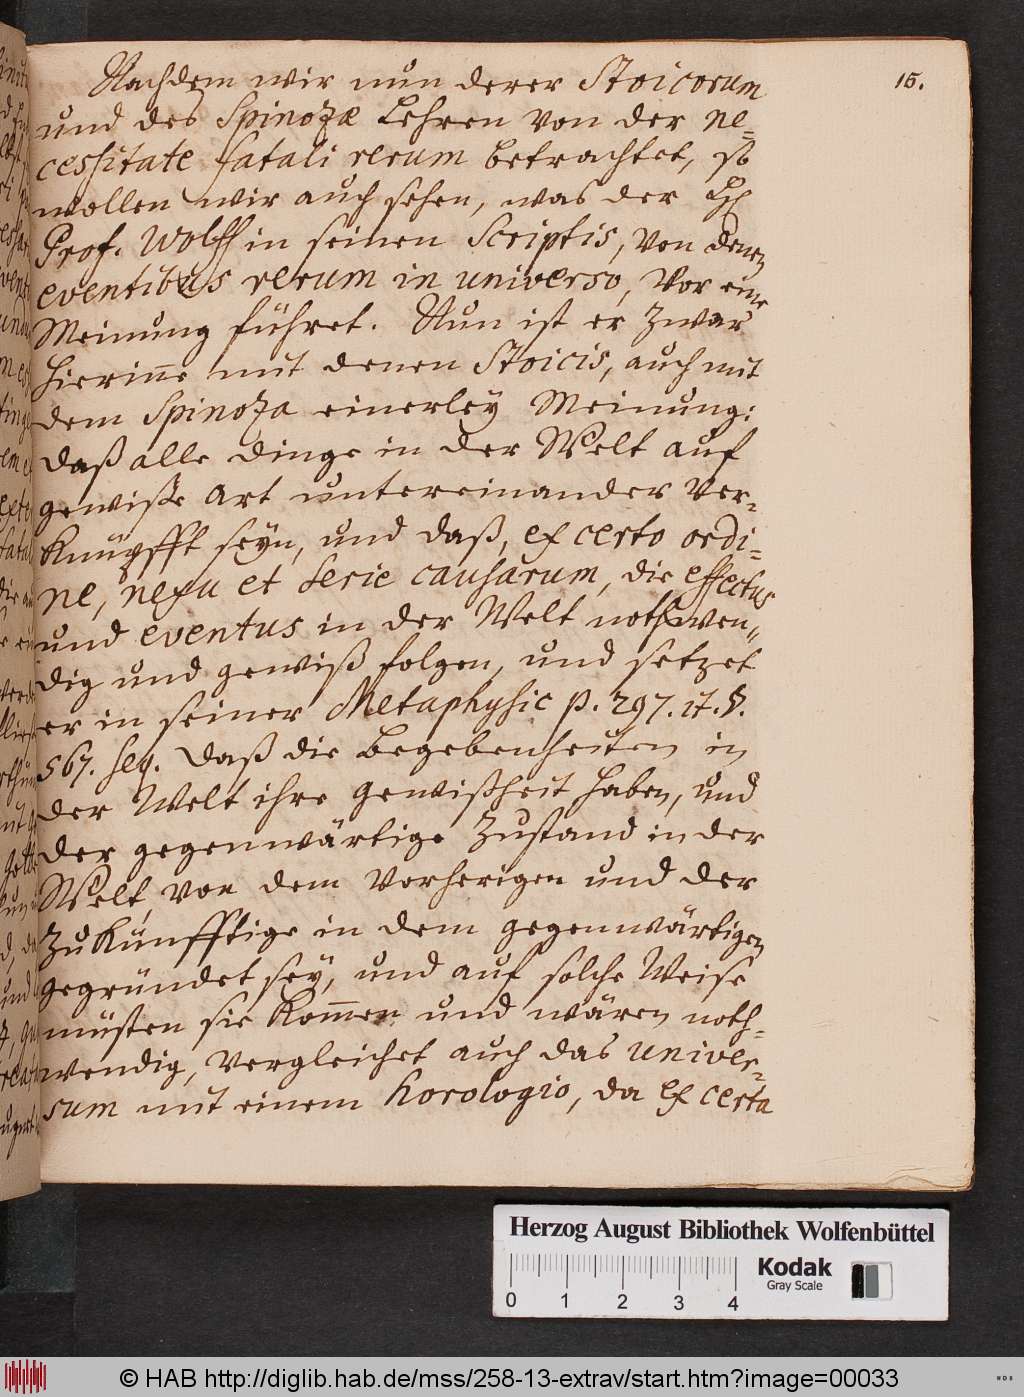 15.
Nachdem wir nun derer Stoicorum
und des Spinozæ Lehren von der ne-
cessitate fatali rerum betrachtet, so
wollen wir auch sehen, was der
Prof. Wolff in seinen Scriptis, von denen
eventibus rerum in universo, vor eine
Meinung führet. Nun ist er zwar
hierinne mit denen Stoicis, auch mit
dem Spinoza einerley Meinung:
daß alle dinge in der Welt auf
gewiße Art untereinander ver-
knüpfft seyn, und daß, ex certo ordi-
ne, nexu et serie causarum, die effectus
und eventus in der Welt nothwen-
dig und gewiß folgen, und setzet
er in seiner Metaphysic p. 297. it. §.
567. seq. daß die Begebenheiten in
der Welt ihre Gewißheit haben, und
der gegenwärtige Zustand in der
Welt, von dem vorherigen und der
Zukünfftige in dem gegenwärtigen
gegründet sey, und auf solche Weise
müsten sie kom̅en und wären noth-
wendig, vergleichet auch das univer-
sum mit einem horologio, da ex certa
Herzog August Bibliothek Wolfenbüttel
0 1 2 3 4
Kodak
Gray Scale
© HAB http://diglib.hab.de/mss/258-13-extrav/start.htm?image=00033